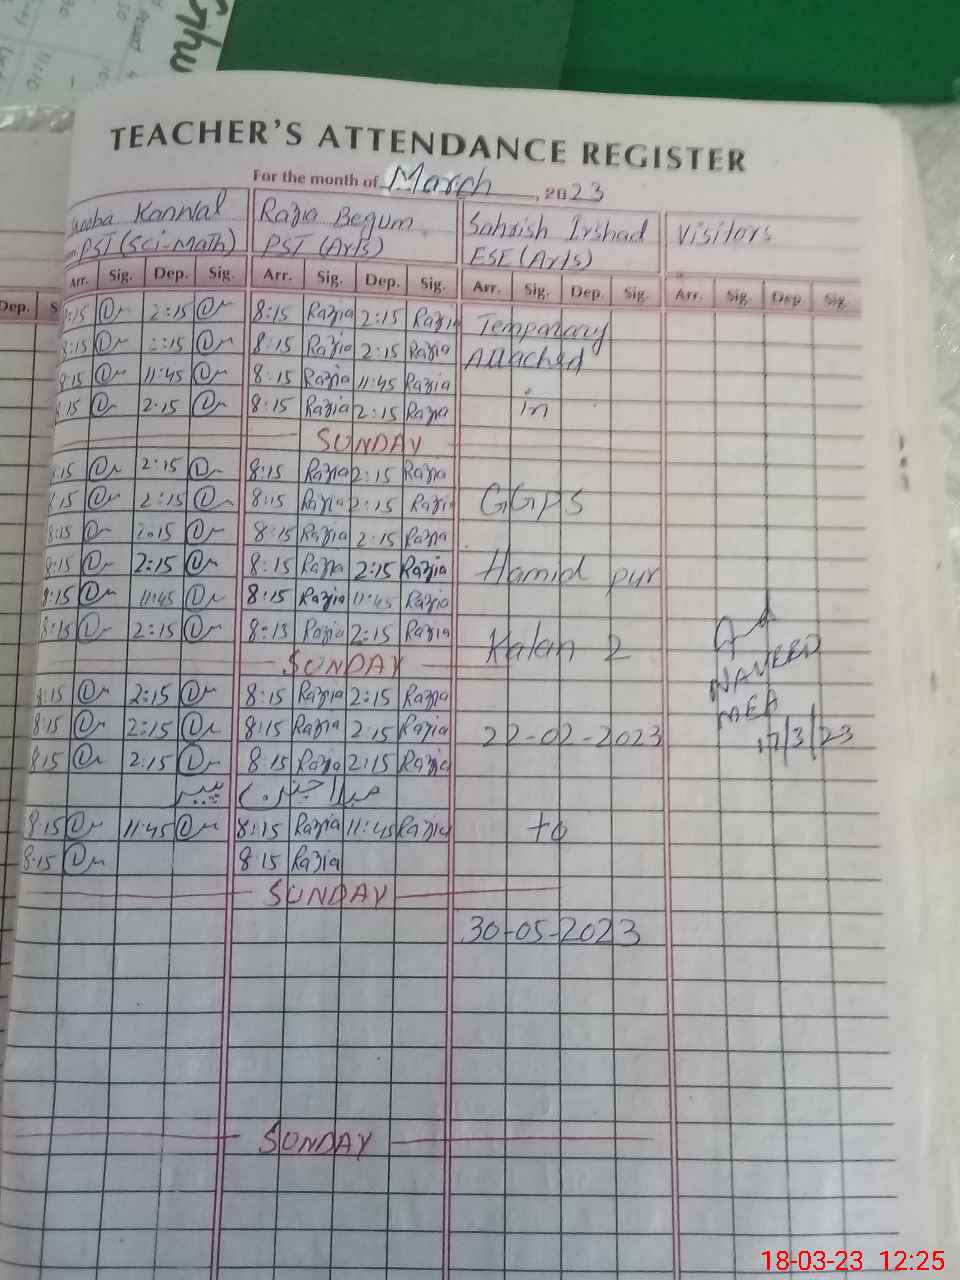 TEACHER'S ATTENDANCE REGISTER
For the month of March, 2023
Kanwal Razia Begum Sahrish Irshad Visitors
PST (Sci-Math) PST (Arts) ESE (Arts)
Dep. S Arr. Sig. Dep. Sig. Arr. Sig. Dep. Sig. Arr. Sig. Dep. Sig. Arr. Sig. Dep Sig.
:15 2:15 8:15 Razia 2:15 Razia Temporary
8:15 :15 8:15 Razia 2:15 Razia Attached
8:15 11:45 8:15 Razia 11:45 Razia
8:15 2:15 8:15 Razia 2:15 Razia in
SUNDAY
:15 2:15 8:15 Razia 2:15 Razia
:15 2:15 8:15 Razia 2:15 Razia GGPS
8:15 2:15 8:15 Razia 2:15 Razia
8:15 2:15 8:15 Razia 2:15 Razia Hamid pur
8:15 11:45 8:15 Razia 11:45 Razia
8:15 2:15 8:13 Razia 2:15 Razia Kalan 2
SUNDAY
8:15 2:15 8:15 Razia 2:15 Razia NAVEED
8:15 2:15 8:15 Razia 2:15 Razia 22-02-2023 MEA
8:15 2:15 8:15 Razia 2:15 Razia 17/3/23
8:15 11:45 8:15 Razia 11:45 Razia to
8:15 8:15 Razia
SUNDAY
30-05-2023
SUNDAY
18-03-23 12:25